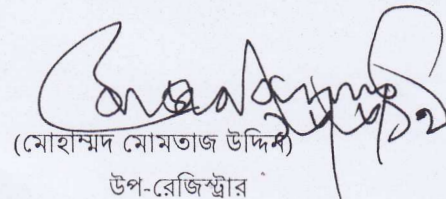 (মোহাম্মদ মোমতাজ উদ্দিন)
উপ-রেজিস্ট্রার